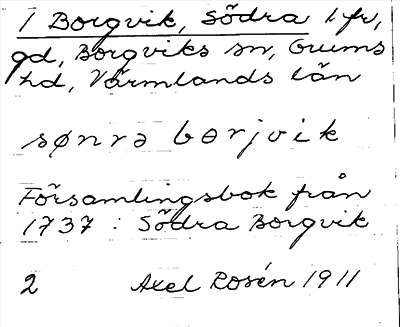 1 Borgvik, Södra 1 fr,
gd, Borgviks sn, Grums
hd, Värmlands län
sønrə bɵrjvik
Församlingsbok från
1737: Södra Borgvik
2 Axel Rosén 1911